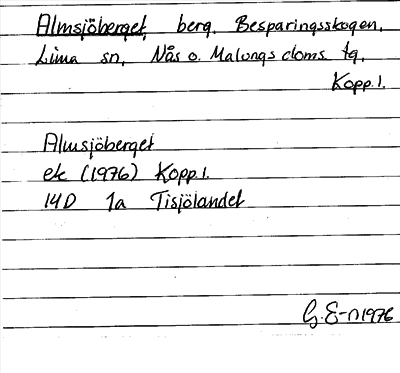 Almsjöberget, berg. Besparingsskogen,
Lima sn, Nås o. Malungs doms. tg,
Kopp.l.
Almsjöberget
ek (1976) Kopp.l.
14D 1a Tisjölandet
G. E-n 1976